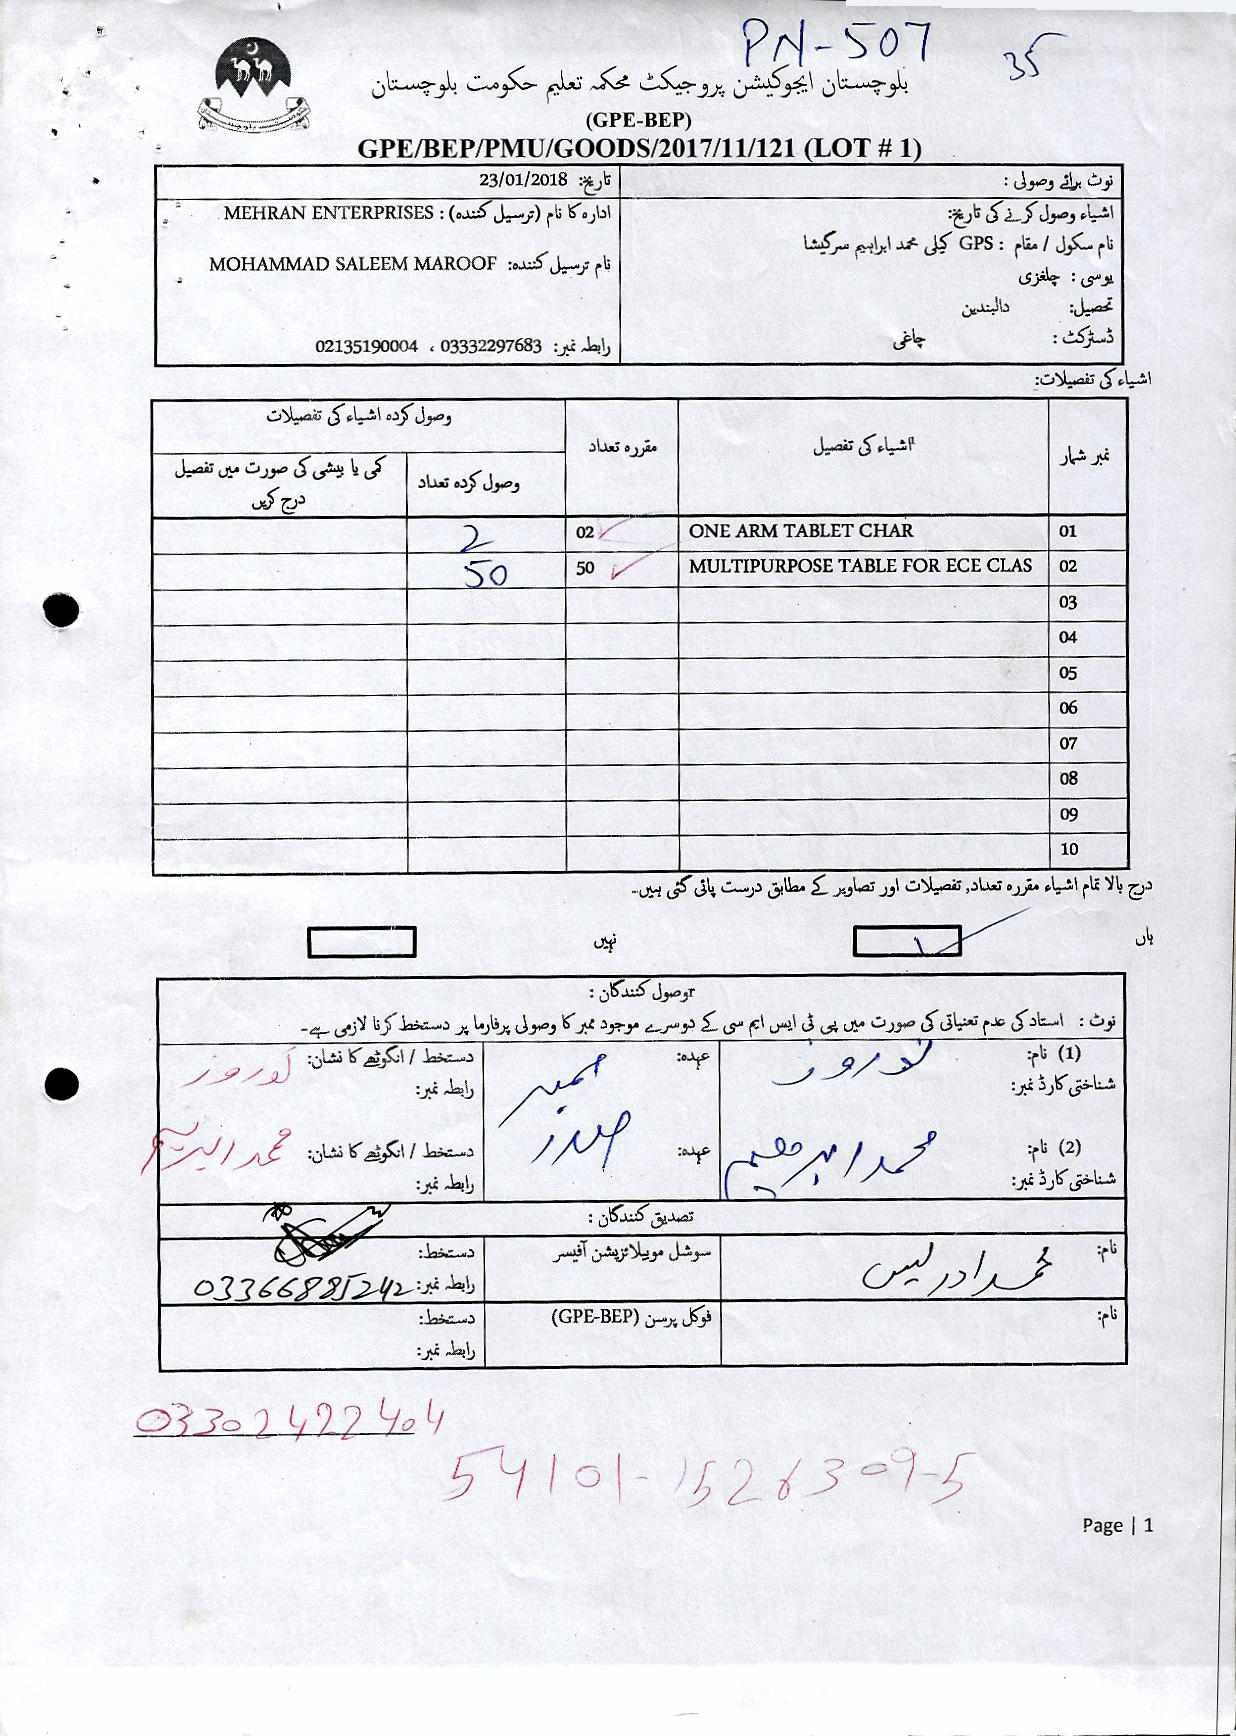 PN-507
35
بلوچستان ایجوکیشن پروجیکٹ محکمہ تعلیم حکومت بلوچستان
(GPE-BEP)
GPE/BEP/PMU/GOODS/2017/11/121 (LOT # 1)
نوٹ برائے وصولی :
تاریخ: 23/01/2018
اشیاء وصول کرنے کی تاریخ:
نام سکول / مقام : GPS کیلی محمد ابراہیم سرگیشا
یوسی : چلغزی
تحصیل: دالبندین
ڈسٹرکٹ : چاغی
ادارہ کا نام (ترسیل کنندہ) : MEHRAN ENTERPRISES
نام ترسیل کنندہ: MOHAMMAD SALEEM MAROOF
رابطہ نمبر: 03332297683 ، 02135190004
اشیاء کی تفصیلات:
نمبر شمار اشیاء کی تفصیل مقررہ تعداد وصول کردہ اشیاء کی تفصیلات
وصول کردہ تعداد کمی یا بیشی کی صورت میں تفصیل درج کریں
01 ONE ARM TABLET CHAR 02 2
02 MULTIPURPOSE TABLE FOR ECE CLAS 50 50
03
04
05
06
07
08
09
10
درج بالا تمام اشیاء مقررہ تعداد, تفصیلات اور تصاویر کے مطابق درست پائی گئی ہیں۔
ہاں نہیں
وصول کنندگان :
نوٹ : استاد کی عدم تعنیاتی کی صورت میں پی ٹی ایس ایم سی کے دوسرے موجود ممبر کا وصولی پرفارما پر دستخط کرنا لازمی ہے۔
(1) نام: نوروز عہدہ: ممبر دستخط / انگوٹھے کا نشان: نوروز
شناختی کارڈ نمبر: رابطہ نمبر:
(2) نام: محمد ابراهیم عہدہ: صدر دستخط / انگوٹھے کا نشان: محمد ابراہیم
شناختی کارڈ نمبر: رابطہ نمبر:
تصدیق کنندگان :
نام: محمد ادریس سوشل موبیلائزیشن آفیسر دستخط:
رابطہ نمبر: 03366885242
نام: فوکل پرسن (GPE-BEP) دستخط:
رابطہ نمبر:
03302422404
54101-1526309-5
Page | 1